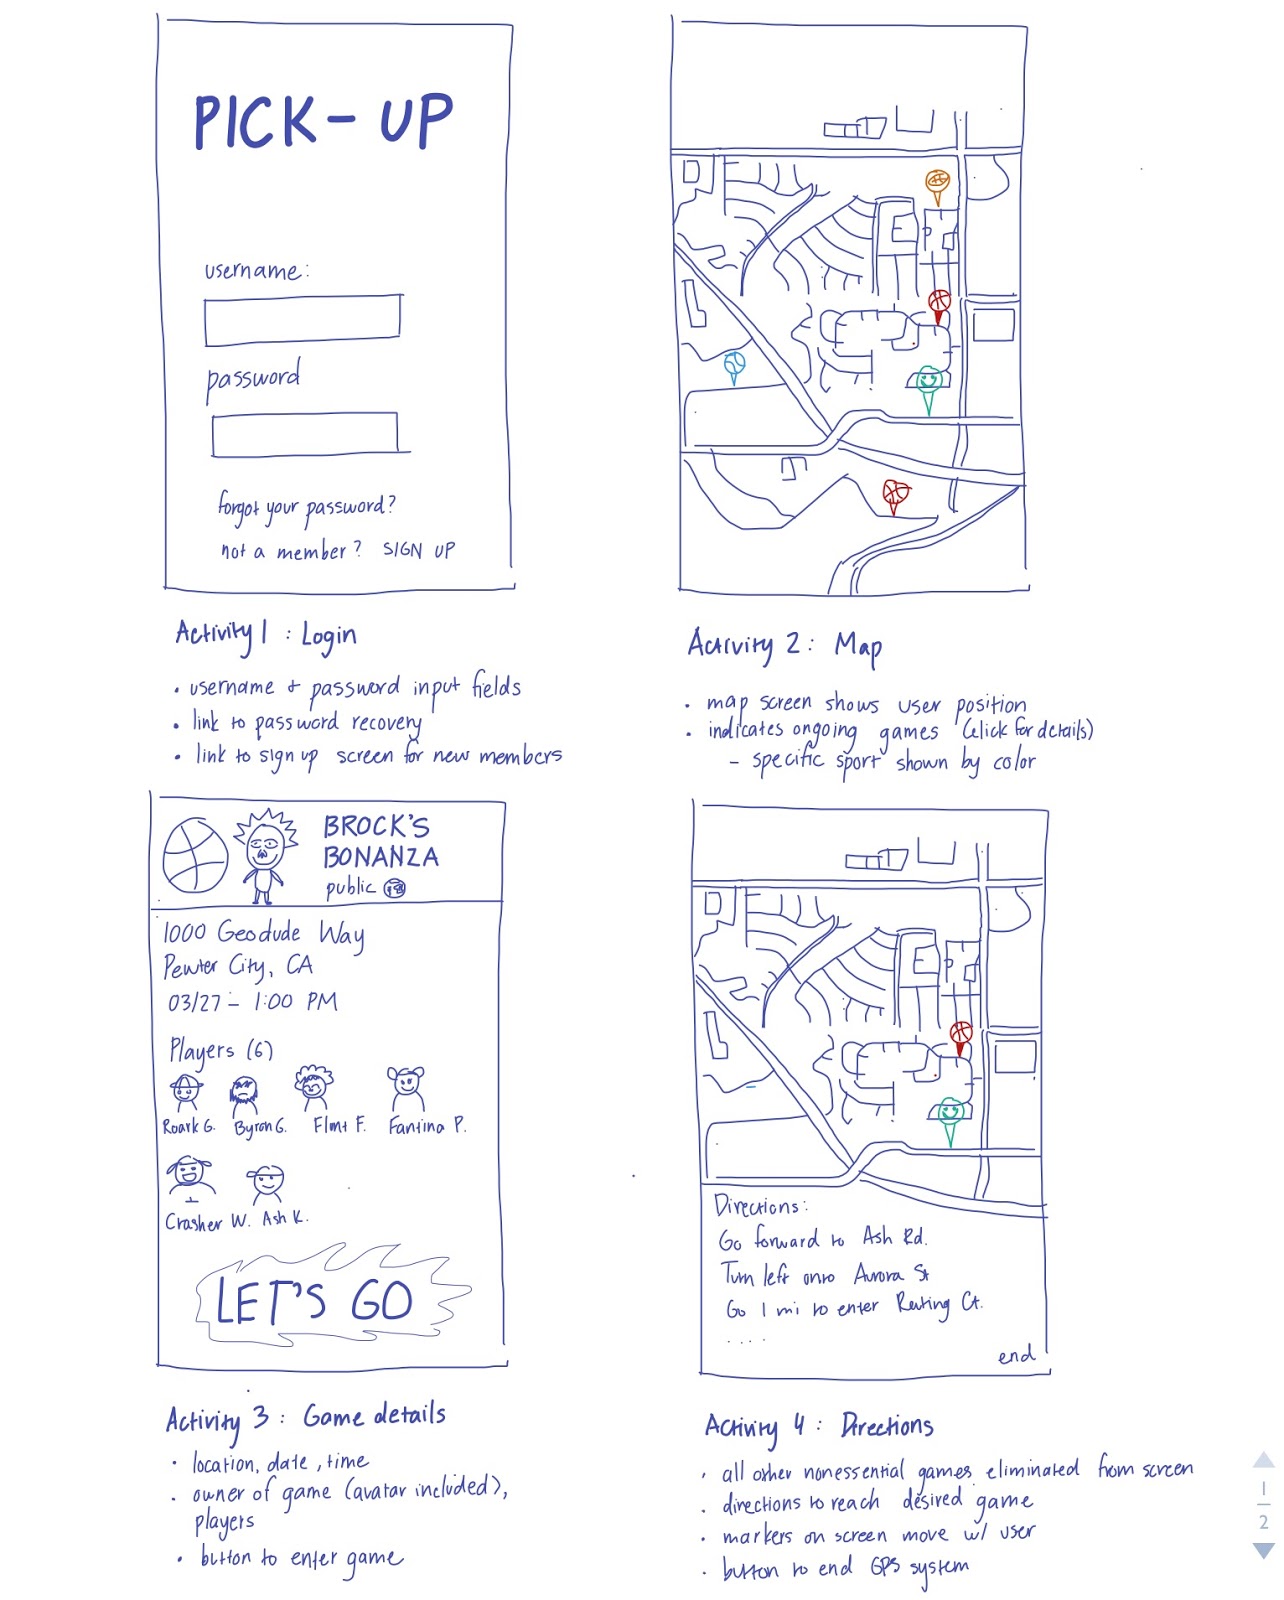 PICK-UP
username:
password
forgot your password?
not a member? SIGN UP
Activity 1 : Login
• username + password input fields
• link to password recovery
• link to sign up screen for new members
Activity 2 : Map
• map screen shows user position
• indicates ongoing games (click for details)
- specific sport shown by color
BROCK'S
BONANZA
public
1000 Geodude Way
Pewter City, CA
03/27 - 1:00 PM
Players (6)
Roark G. Byron G. Flint F. Fantina P.
Crasher W. Ash K.
LET'S GO
Activity 3 : Game details
• location, date, time
• owner of game (avatar included),
players
• button to enter game
Directions:
Go forward to Ash Rd.
Turn left onto Aurora St
Go 1 mi to enter Ct.
....
end
Activity 4 : Directions
• all other nonessential games eliminated from screen
• directions to reach desired game
• markers on screen move w/ user
• button to end GPS system
1
2